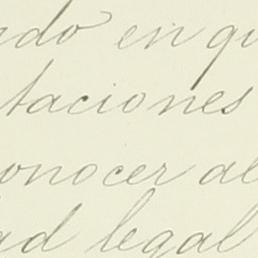 ado en qu
taciones
onocer al
ad legal